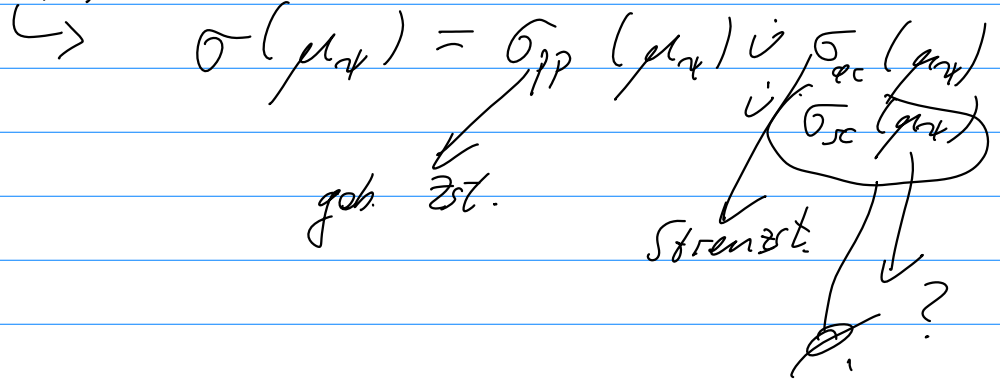 ↳ σ(μ_ψ) = σ_pp (μ_ψ) ∪̇ σ_ac (μ_ψ)
∪̇ σ_sc (μ_ψ)
geb. Zst.
Streuzst.
?
∅.